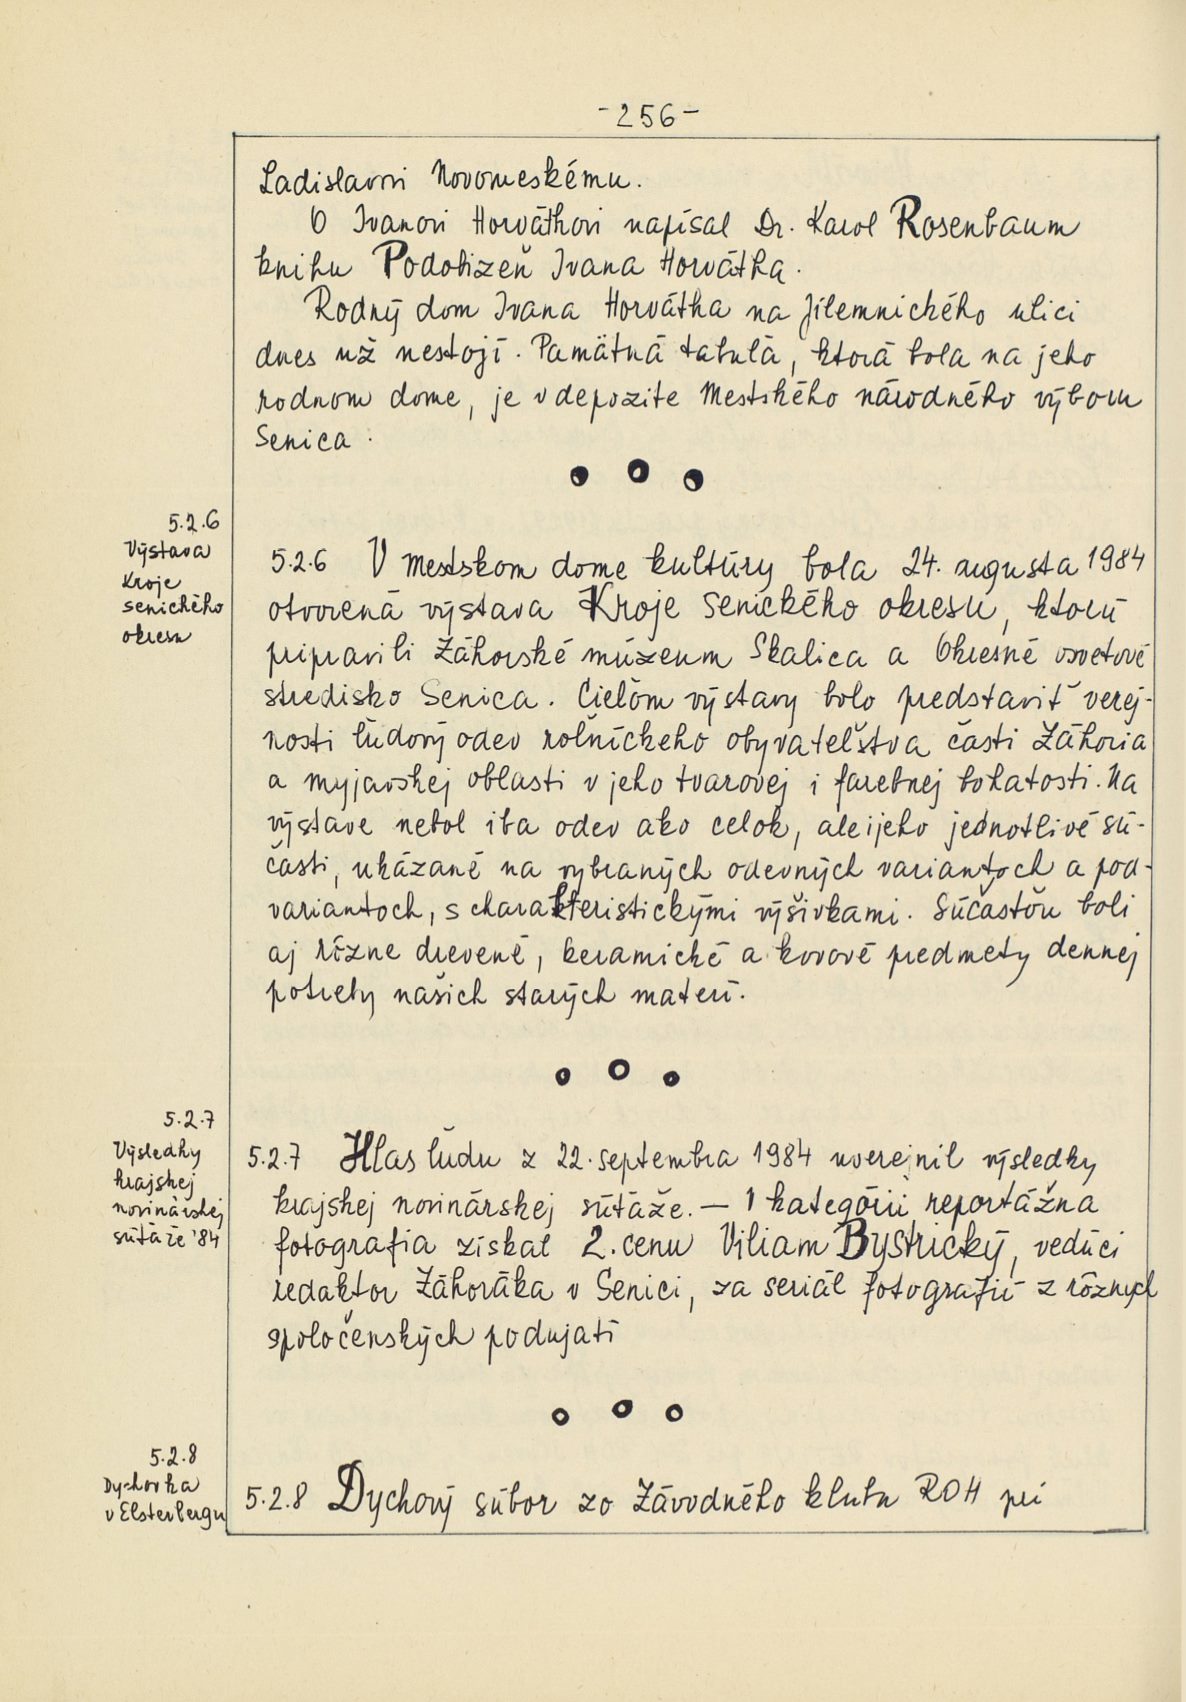 -256-
Ladislavovi Novomeskému.
O Ivanovi Horváthovi napísal Dr. Karol Rosenbaum
knihu Podobizeň Ivana Horvátha.
Rodný dom Ivana Horvátha na Jilemnického ulici
dnes už nestojí. Pamätná tabuľa, ktorá bola na jeho
rodnom dome, je v depozite Mestského národného výboru
Senica.
5.2.6
Výstava
Kroje
senického
okresu
5.2.6 V Mestskom dome kultúry bola 24. augusta 1984
otvorená výstava Kroje Senického okresu, ktorú
pripravili Záhorské múzeum Skalica a Okresné osvetové
stredisko Senica. Cieľom výstavy bolo predstaviť verej-
nosti ľudový odev roľníckeho obyvateľstva časti Záhoria
a myjavskej oblasti v jeho tvarovej i farebnej bohatosti. Na
výstave nebol iba odev ako celok, ale i jeho jednotlivé sú-
časti, ukázané na vybraných odevných variantoch a pod-
variantoch, s charakteristickými výšivkami. Súčasťou boli
aj rôzne drevené, keramické a kovové predmety dennej
potreby našich starých materí.
5.2.7
Výsledky
krajskej
novinárskej
súťaže '84
5.2.7 Hlas ľudu z 22. septembra 1984 uverejnil výsledky
krajskej novinárskej súťaže. — V kategórii reportážna
fotografia získal 2. cenu Viliam Bystrický, vedúci
redaktor Záhoráka v Senici, za seriál fotografií z rôznych
spoločenských podujatí
5.2.8
Dychovka
v Elsterbergu
5.2.8 Dychový súbor zo Závodného klubu ROH pri